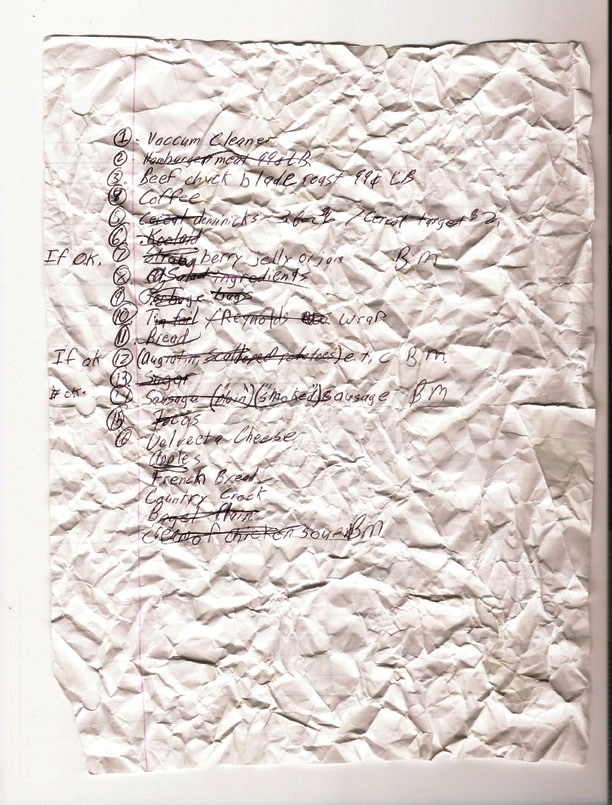 ① Vaccum Cleaner
② Hamburger meat 99¢ LB
③ Beef chuck blade roast 99¢ LB
④ Coffee
⑤ Cereal dominicks / Cereal target $2
⑥ Koolaid
If ok. ⑦ Strawberry jelly or jam B.M
⑧ Salad ingredients
⑨ Garbage bags
⑩ Tin foil / Reynolds wrap
⑪ Bread
If ok ⑫ (Augratin, scattered potatoes) e.t.c B.M.
⑬ Sugar
If ok. ⑭ Sausage ("plain") ("smoked") sausage BM
⑮ Tacos
⑯ Velvecta Cheese
Apples
French Bread
Country Crock
Bagel Plain
Cream of chicken soup BM